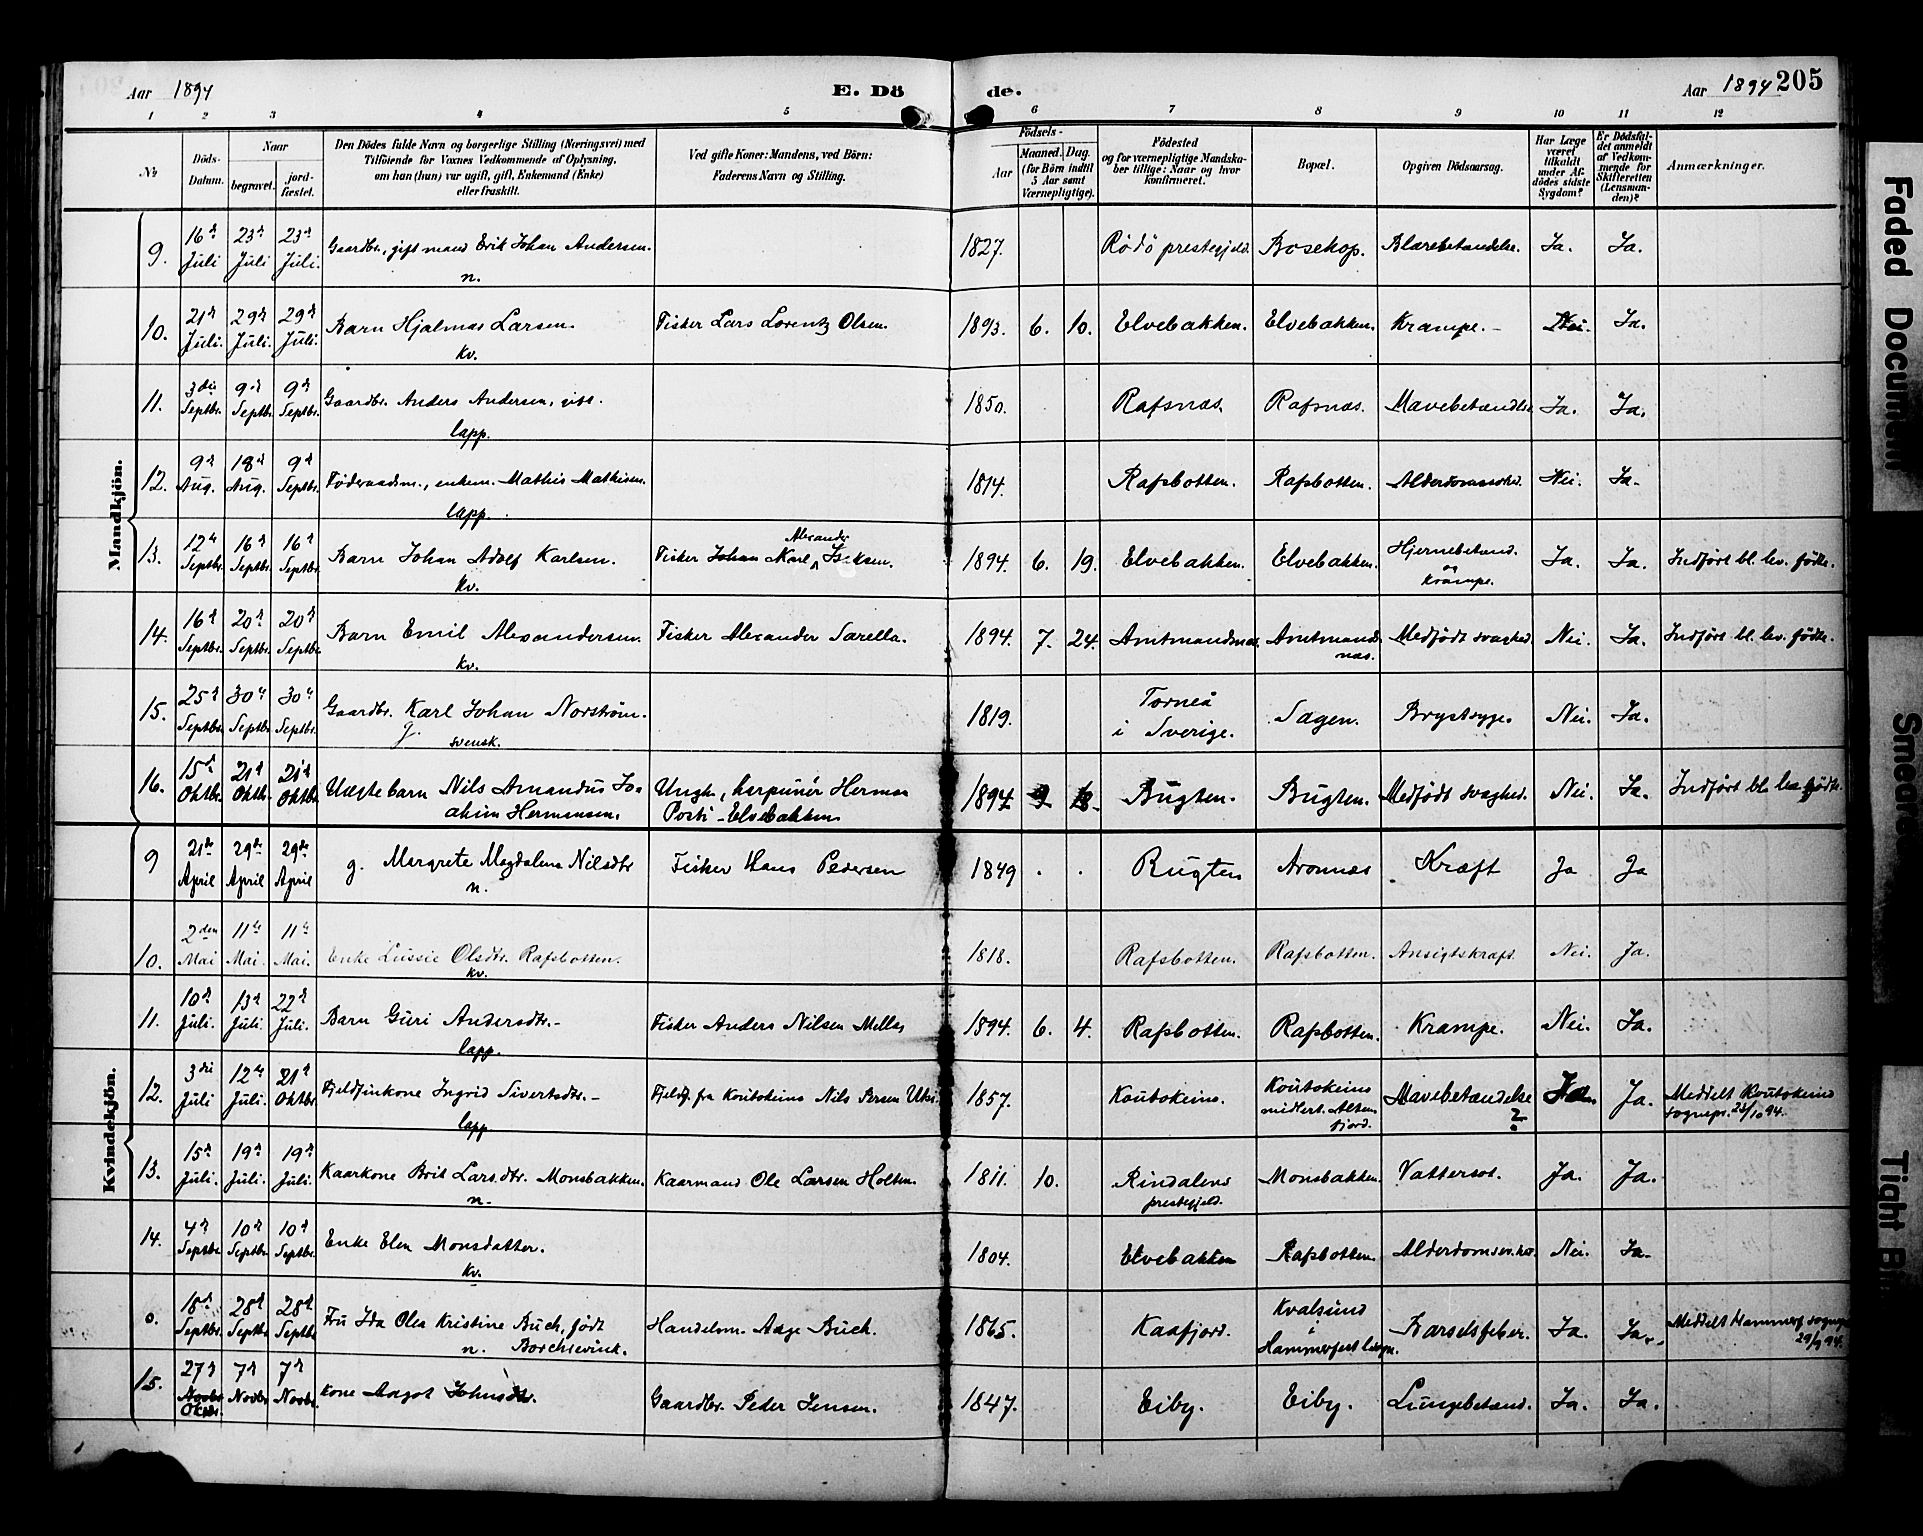 Aar 1894 E. Dö de. Aar 1894 205
1 2 3 4 5 6 7 8 9 10 11 12
№ Döds-Datum. Naar begravet. jordfæstet. Den Dödes fulde Navn og borgerlige Stilling (Næringsvei) med Tilföiende for Voxnes Vedkommende af Oplysning, om han (hun) var ugift, gift, Enkemand (Enke) eller fraskilt. Ved gifte Koner: Mandens, ved Börn: Faderens Navn og Stilling. Födsels- Aar Maaned. Dag. (for Börn indtil 5 Aar samt Værnepligtige). Födested og for værnepligtige Mandskaber tillige: Naar og hvor konfirmeret. Bopæl. Opgiven Dödsaarsag. Har Læge været tilkaldt under Afdödes sidste Sygdom? Er Dödsfaldet anmeldt af Vedkommende for Skifteretten (Lensmanden)? Anmærkninger.
Mandkjön.
9. 16d Juli 23d Juli 23d Juli. Gaardbr., gift mand Erik Johan Andersen. n. 1827. Rödö prestegjeld. Bosekop. Blærebetændelse. Ja. Ja.
10. 21d Juli. 29d Juli. 29d Juli. Barn Hjalmar Larsen. kv. Fisker Lars Lorentz Olsen. 1893. 6. 10. Elvebakken. Elvebakken. Krampe. Nei. Ja.
11. 3die Septbr. 9d Septbr. 9d Septbr. Gaardbr. Anders Andersen, lapp. 1850. Rafsnæs. Rafsnæs. Mavebetændlse Ja. Ja.
12. 9d Aug. 18d Aug. 9d Septbr. Föderaadsm., enkem. Mathis Mathisen. lapp. 1814. Rafsbotten. Rafsbotten. Alderdomssvhed. Nei. Ja.
13. 12te Septbr. 16d Septbr. 16d Septbr. Barn Johan Adolf Karlsen. kv. Fisker Johan Karl Alexander Isaksen. 1894. 6. 19. Elvebakken. Elvebakken. Hjernebetænd. og krampe. Ja. Ja. Indfört bl. lev. födte.
14. 16d Septbr. 20d Septbr. 20d Septbr. Barn Emil Alexandersen. kv. Fisker Alexander Sarella. 1894. 7. 24. Amtmandsnæs. Amtmandsnæs. Medfödt svaghed. Nei. Ja. Indfört bl. lev. födte.
15. 25d Septbr. 30te Septbr. 30te Septbr. Gaardbr. Karl Johan Norström. g. svensk. 1819. Torneå i Sverige. Sagen. Brystsyge. Nei. Ja.
16. 15d Oktbr. 21d Oktbr. 21d Oktbr. Uægte barn Nils Amandus Joakim Hermansen. Ungk., harpunér Herman Posti - Elvebakken 1894 9 18. Bugten. Bugten. Medfödt svaghed. Nei. Ja. Indfört bl. lev. födte.
Kvindekjön.
9 21de April 29de April 29de April g. Margrete Magdalena Nilsdtr n. Fisker Hans Pedersen 1849 . . Bugten Aronnæs Kræft Ja Ja
10. 2den Mai 11te Mai. 11te Mai. Enke Lussie Olsdtr. Rafsbotten. kv. 1818. Rafsbotten. Rafsbotten. Ansigtskræft. Nei. Ja.
11. 10d Juli. 13d Juli. 22d Juli. Barn Guri Andersdtr. lapp. Fisker Anders Nilsen Mella 1894. 6. 4. Rafsbotten. Rafsbotten. Krampe. Nei. Ja.
12. 3die Juli 12te Juli. 21d Oktbr. Fjeldfinkone Ingrid Sivertsdtr. lapp. Fjeldf. fra Koutokeino Nils Persen Utsi. 1857. Koutokeino. Koutokeino midlert. Altenfjord. Mavebetændelse ? Ja. Meddelt Koutokeino sognepr. 23/10 94.
13. 15d Juli. 19d Juli. 19d Juli. Kaarkone Brit Larsdtr. Monsbakken. n. Kaarmand Ole Larsen Holten. 1811. 10. Rindalens prestegjeld. Monsbakken. Vattersot. Ja. Ja.
14. 4d Septbr. 10d Septbr. 10d Septbr. Enke Elen Monsdatter. kv. 1804. Elvebakken Rafsbotten. Alderdomssvhed. Nei. Ja.
0. 18d Septbr. 28d Septbr. 28d Septbr. Fru Ida Olea Kristine Buch, födt Borchgrevink. n. Handelsm. Aage Buch. 1865. Kaafjord. Kvalsund i Hammerfest Barselsfeber. Ja. Ja. Meddelt Hammerf. sognepr. 29/9 94.
15. 27d Novbr. Oktbr. 7d Novbr. 7d Novbr. Kone Angot Johnsdtr. Gaardbr. Peder Jensen. 1847. Eiby. Eiby. Lungebetænd. Ja. Ja.
Faded Document
Smeared
Tight Bi